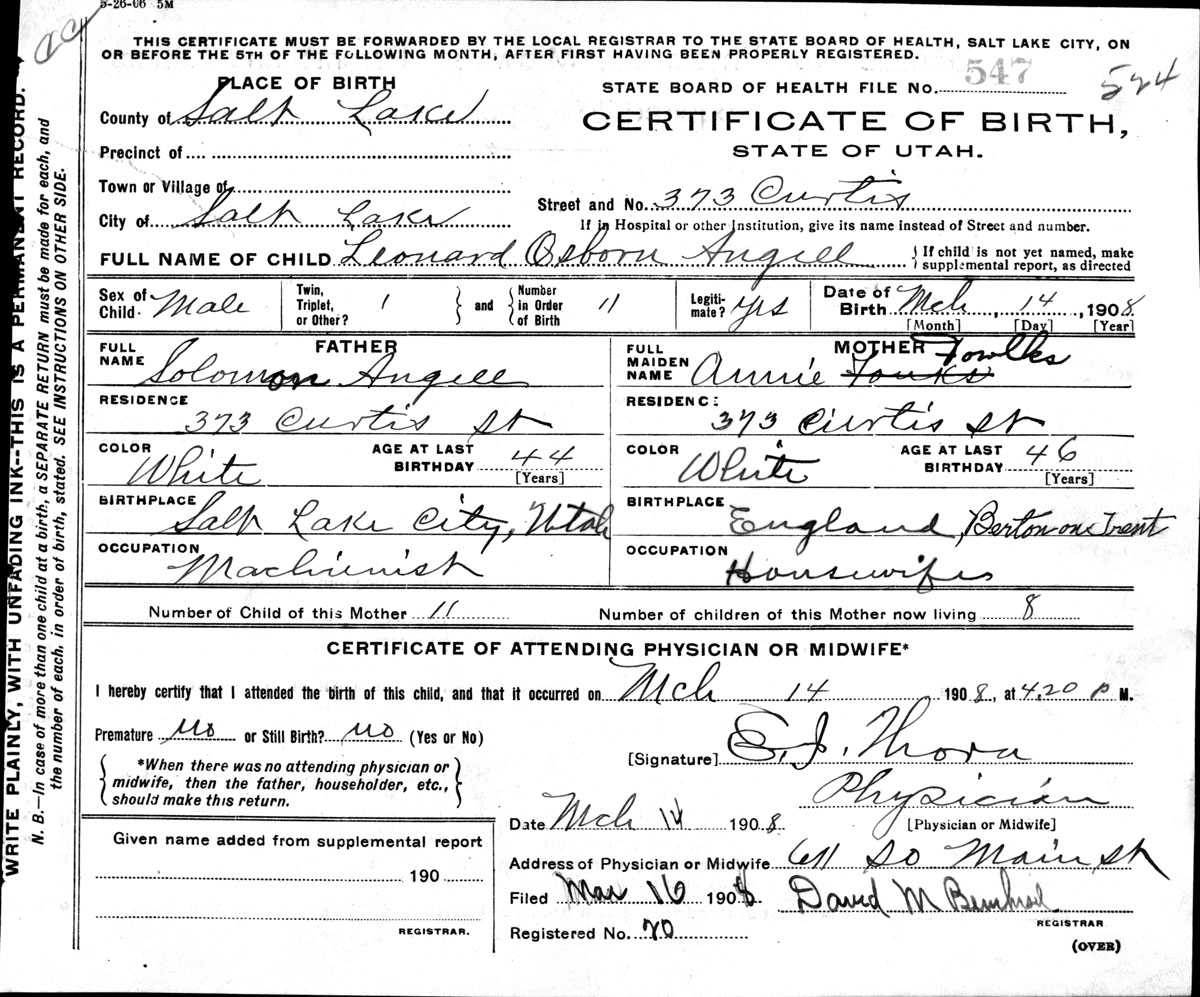 5-26-06 5M
THIS CERTIFICATE MUST BE FORWARDED BY THE LOCAL REGISTRAR TO THE STATE BOARD OF HEALTH, SALT LAKE CITY, ON
OR BEFORE THE 5TH OF THE FOLLOWING MONTH, AFTER FIRST HAVING BEEN PROPERLY REGISTERED.
PLACE OF BIRTH
STATE BOARD OF HEALTH FILE No. 547 524
County of Salt Lake
CERTIFICATE OF BIRTH,
STATE OF UTAH.
Precinct of
Town or Village of
Street and No. 373 Curtis
City of Salt Lake
If in Hospital or other Institution, give its name instead of Street and number.
FULL NAME OF CHILD Leonard Osborn Angell
{If child is not yet named, make
supplemental report, as directed
Sex of Child Male
Twin, Triplet, or Other? 1
and
Number in Order of Birth 11
Legitimate? yes
Date of Birth Mch 14, 1908
[Month] [Day] [Year]
FATHER
FULL NAME Solomon Angell
RESIDENCE
373 Curtis St
COLOR White
AGE AT LAST BIRTHDAY 44
[Years]
BIRTHPLACE
Salt Lake City, Utah
OCCUPATION
Machinist
MOTHER
FULL MAIDEN NAME Annie Fonks Fowlks
RESIDENCE
373 Curtis St
COLOR White
AGE AT LAST BIRTHDAY 46
[Years]
BIRTHPLACE
England, Berton on Trent
OCCUPATION
Housewife
Number of Child of this Mother 11
Number of children of this Mother now living 8
CERTIFICATE OF ATTENDING PHYSICIAN OR MIDWIFE*
I hereby certify that I attended the birth of this child, and that it occurred on Mch 14 1908, at 4.20 P M.
Premature no or Still Birth? no (Yes or No)
[Signature]
{*When there was no attending physician or
midwife, then the father, householder, etc.,
should make this return.}
Physician
[Physician or Midwife]
Date Mch 14 1908.
Address of Physician or Midwife 611 So Main St
Given name added from supplemental report
190
REGISTRAR.
Filed Mar 16 1908
David M
REGISTRAR
Registered No. 70
(OVER)
WRITE PLAINLY, WITH UNFADING INK--THIS IS A PERMANENT RECORD.
N. B.—In case of more than one child at a birth, a SEPARATE RETURN must be made for each, and
the number of each, in order of birth, stated. SEE INSTRUCTIONS ON OTHER SIDE.